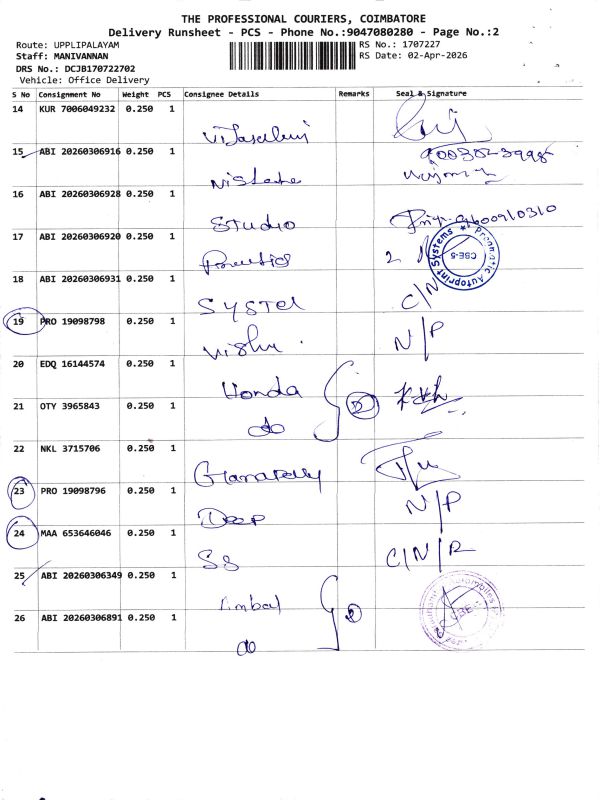 THE PROFESSIONAL COURIERS, COIMBATORE
Delivery Runsheet - PCS - Phone No.:9047080280 - Page No.:2
Route: UPPLIPALAYAM
RS No.: 1707227
Staff: MANIVANNAN
RS Date: 02-Apr-2026
DRS No.: DCJB170722702
Vehicle: Office Delivery
S No Consignment No Weight PCS Consignee Details Remarks Seal & Signature
14 KUR 7006049232 0.250 1
15 ABI 20260306916 0.250 1
16 ABI 20260306928 0.250 1
STUDIO 9600910310
17 ABI 20260306920 0.250 1
18 ABI 20260306931 0.250 1
SYSTEL C/N
19 PRO 19098798 0.250 1
Vishu N/P
20 EDQ 16144574 0.250 1
Honda
21 OTY 3965843 0.250 1
do
22 NKL 3715706 0.250 1
23 PRO 19098796 0.250 1
Deep N/P
24 MAA 653646046 0.250 1
SS C/N/R
25 ABI 20260306349 0.250 1
Ambal
26 ABI 20260306891 0.250 1
do
Pragmatic Autoprint Systems
CBE-5